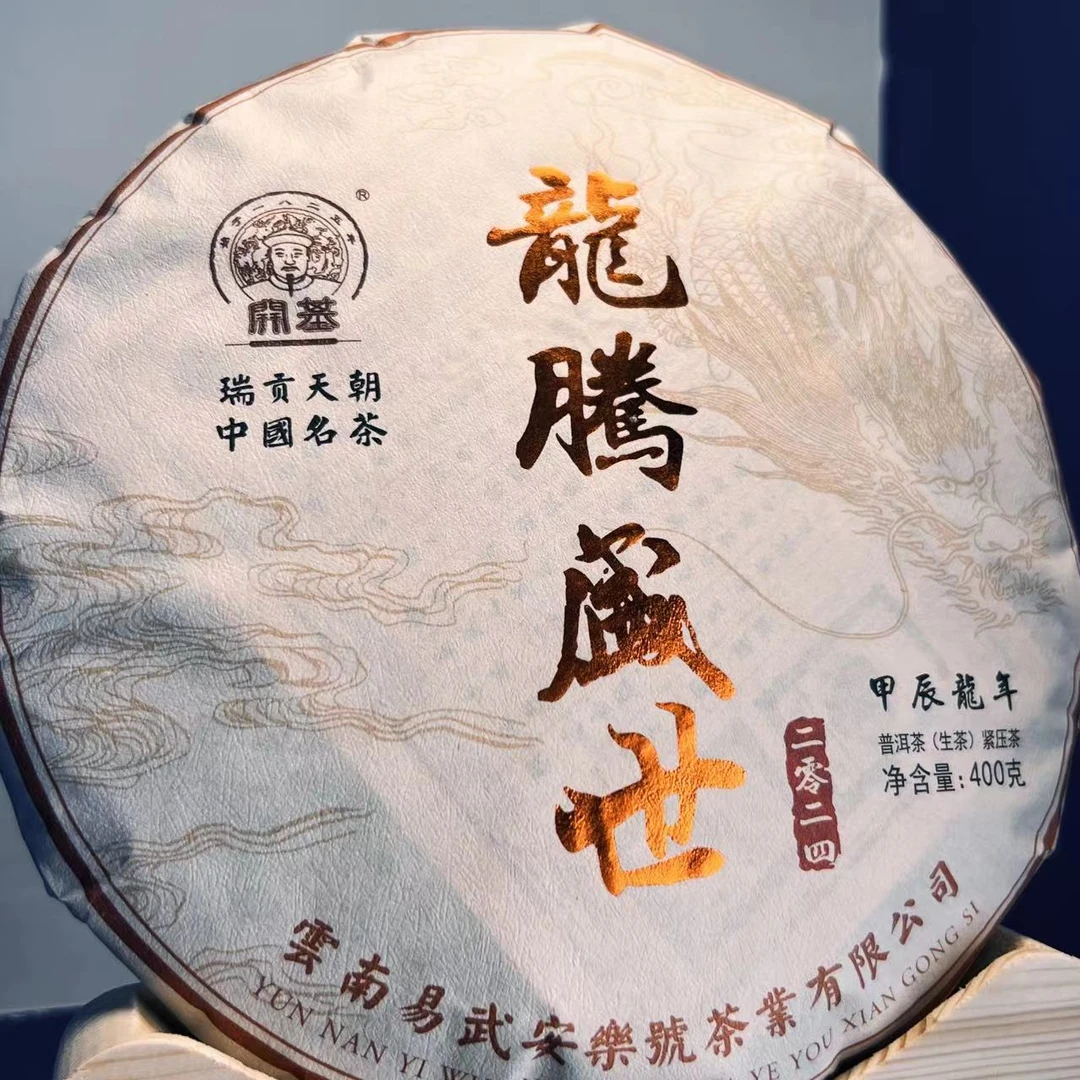 始于一八三五年
®
開基
瑞贡天朝
中國名茶
龍騰盛世
甲辰龍年
普洱茶（生茶）紧压茶
净含量:400克
二零二四
雲南易武安樂號茶業有限公司
YUN NAN YI WU YE YOU XIAN GONG SI